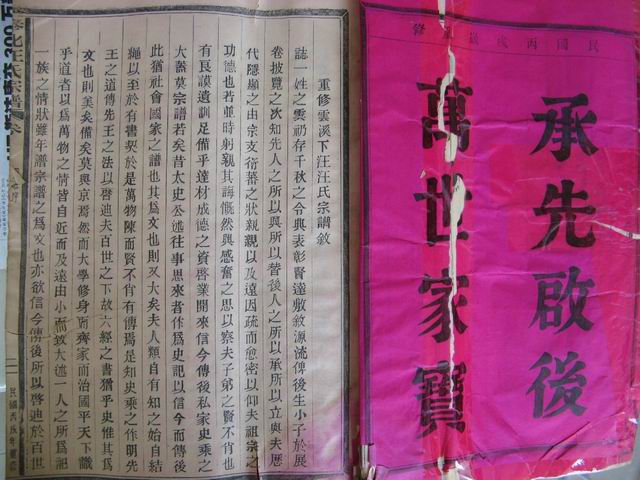 民國丙戌歲重修
承先啟後
萬世家寶
重修雲溪下汪汪氏宗譜敘
誌一姓之雲礽存千秋之令典表彰賢達敷敘源流俾後生小子於展
卷披覽之次知先人之所以興所以替後人之所以承所以立與夫歷
代隱顯之由宗支衍蕃之狀親親以及遠因疏而愈密以仰夫祖宗之
功德也若並時躬親其誨慨然興感奮之思以察夫子弟之賢不肖也
有良謨遺訓足備乎達材成德之資啓業開來信今傳後私家史乘之
大蓋莫宗譜若矣昔太史公述往事思來者作爲史記以信今而傳後
此猶社會國家之譜也其爲文也則又大矣夫人類自有知之始自結
繩以至於有書契於是萬物陳而賢不肖有傳焉是知史乘之作明先
王之道傳先王之法以啓迪夫百世之下故六經之書猶乎史惟其爲
文也則美矣備矣莫與京焉然而大學修身齊家而治國平天下識
乎道者以爲萬物之情皆自近而及遠由小而致大述一人之所爲記
一族之情狀難年譜宗譜之爲文也亦欲信今傳後所以啓迪於百世
北汪氏宗譜卷